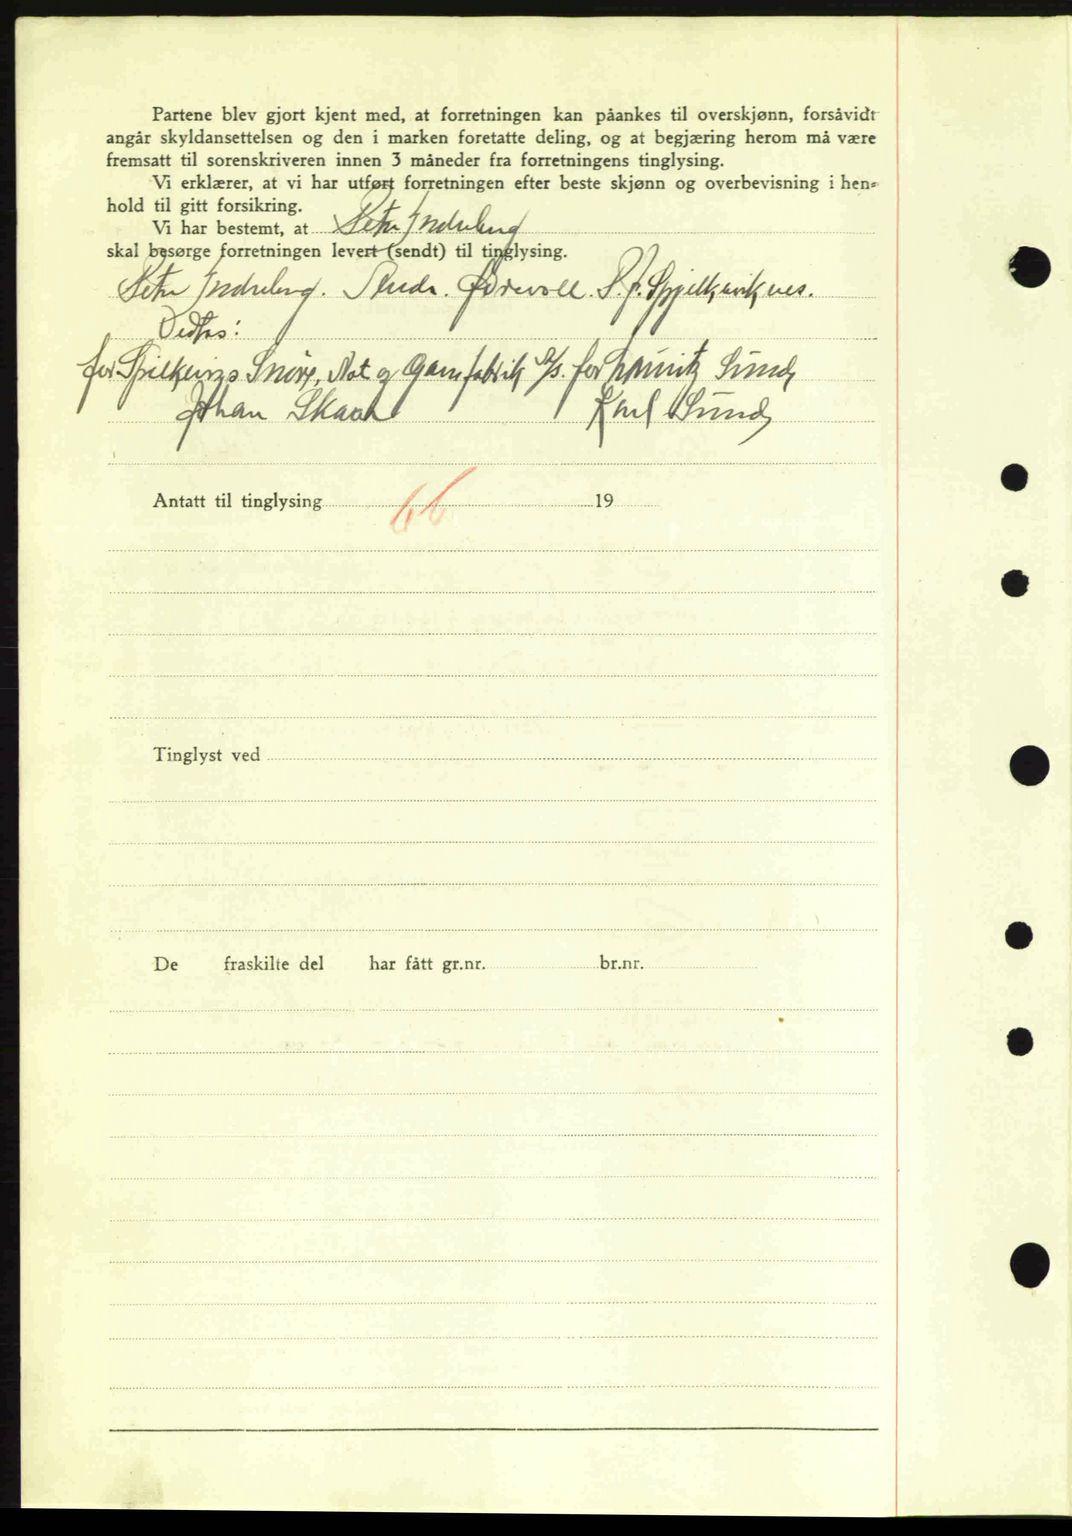 Partene blev gjort kjent med, at forretningen kan påankes til overskjønn, forsåvidt
angår skyldansettelsen og den i marken foretatte deling, og at begjæring herom må være
fremsatt til sorenskriveren innen 3 måneder fra forretningens tinglysing.
Vi erklærer, at vi har utført forretningen efter beste skjønn og overbevisning i hen-
hold til gitt forsikring.
Vi har bestemt, at Petr Indreberg
skal besørge forretningen levert (sendt) til tinglysing.
Petr Indreberg. Andr. P. J. Spjelkaviknes.
Vedtas:
for Spilkevigs Snøre, Not og Garnfabrik A/s. for Lauritz Sund
Johan Skaar Karl Sund
Antatt til tinglysing 66 19
Tinglyst ved
De fraskilte del har fått gr.nr. br.nr.